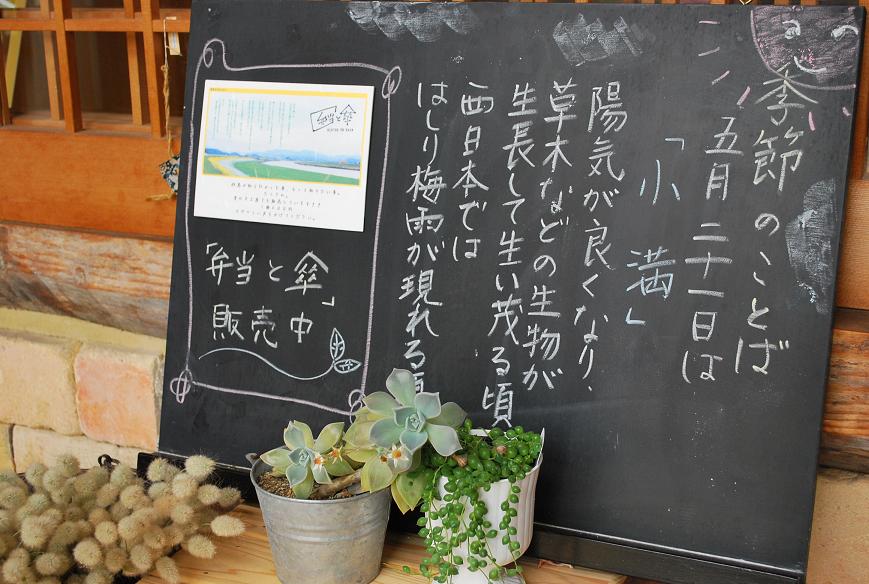 季節のことば
五月二十一日は
「小満」
陽気が良くなり、
草木などの生物が
生長して生い茂る頃
西日本では
はしり梅雨が現れる頃
弁当と傘
「弁当と傘」
販売中